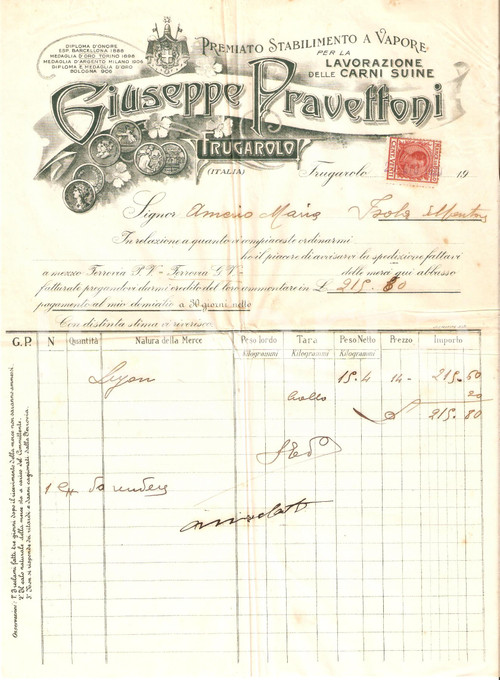 DIPLOMA D'ONORE
ESP. BARCELLONA 1888
MEDAGLIA D'ORO TORINO 1898
MEDAGLIA D'ARGENTO MILANO 1906
DIPLOMA E MEDAGLIA D'ORO
BOLOGNA 1906
PREMIATO STABILIMENTO A VAPORE
PER LA
LAVORAZIONE
DELLE CARNI SUINE
Giuseppe Pravettoni
FRUGAROLO
(ITALIA)
Frugarolo 19
Signor Amerio Maria Isola
In relazione a quanto vi compiaceste ordinarmi
ho il piacere di avvisarvi la spedizione fattavi
a mezzo Ferrovia P.V. - Ferrovia G.V. - delle merci qui abbasso
fatturate pregandovi darmi credito del loro ammontare in L. 215.80
pagamento al mio domicilio a 30 giorni netto
Con distinta stima vi riverisco
G.P. N Quantità Natura della Merce Peso lordo Tara Peso Netto Prezzo Importo
Kilogrammi Kilogrammi Kilogrammi
Lyon 15.4 14- 215-50
Collo
215.80
1
OSSERVAZIONI: 1° I reclami fatti tre giorni dopo il ricevimento della merce non saranno ammessi.
2° Il calo naturale della merce sta a carico del Committente.
3° Non si risponde dei ritardi o danni cagionati dalla Ferrovia.